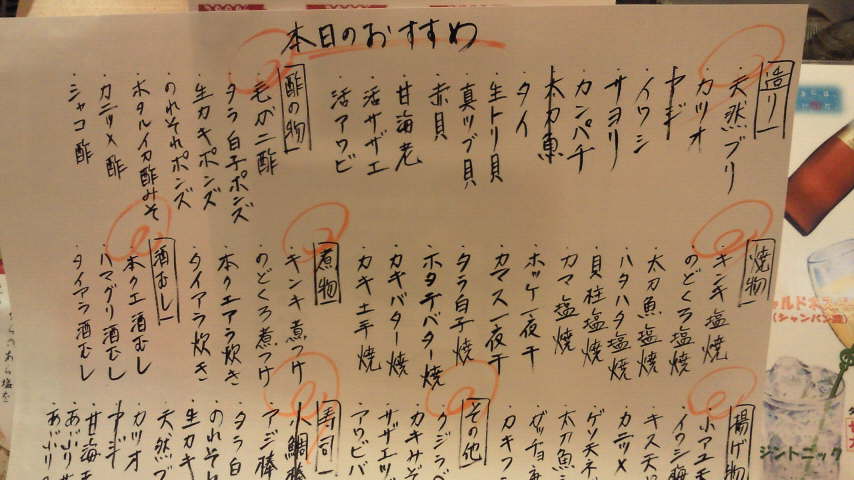 本日のおすすめ
造り
・天然ブリ
・カツオ
・ヤジ
・イワシ
・サヨリ
・カンパチ
・太刀魚
・タイ
・生トリ貝
・真ツブ貝
・赤貝
・甘海老
・活サザエ
・活アワビ
酢の物
・毛ガニ酢
・タラ白子ポンズ
・生カキポンズ
・のれそれポンズ
・ホタルイカ酢みそ
・カニツメ酢
・シャコ酢
焼物
・キンキ塩焼
・のどくろ塩焼
・太刀魚塩焼
・ハタハタ塩焼
・貝柱塩焼
・カマ塩焼
・ホッケ一夜干
・カマス一夜干
・タラ白子焼
・ホタテバター焼
・カキバター焼
・カキ土手焼
煮物
・キンキ煮つけ
・のどくろ煮つけ
・本クエアラ炊き
・タイアラ炊き
酒むし
・本クエ酒むし
・ハマグリ酒むし
・タイアラ酒むし
揚げ物
・小アユ天
・イワシ梅
・キス天
・カニツメ
・ゲソ天
・太刀魚
・ガッチョ
・カキフ
その他
・クジラベ
・カキみぞ
・サザエツ
・アワビバ
寿司
・小鯛棒
・アジ棒
・タラ白
・のれそれ
・生カキ
・天然ブ
・カツオ
・ヤジ
・甘海老
・あぶり
・あぶり
ジントニック
(シャンパン風)